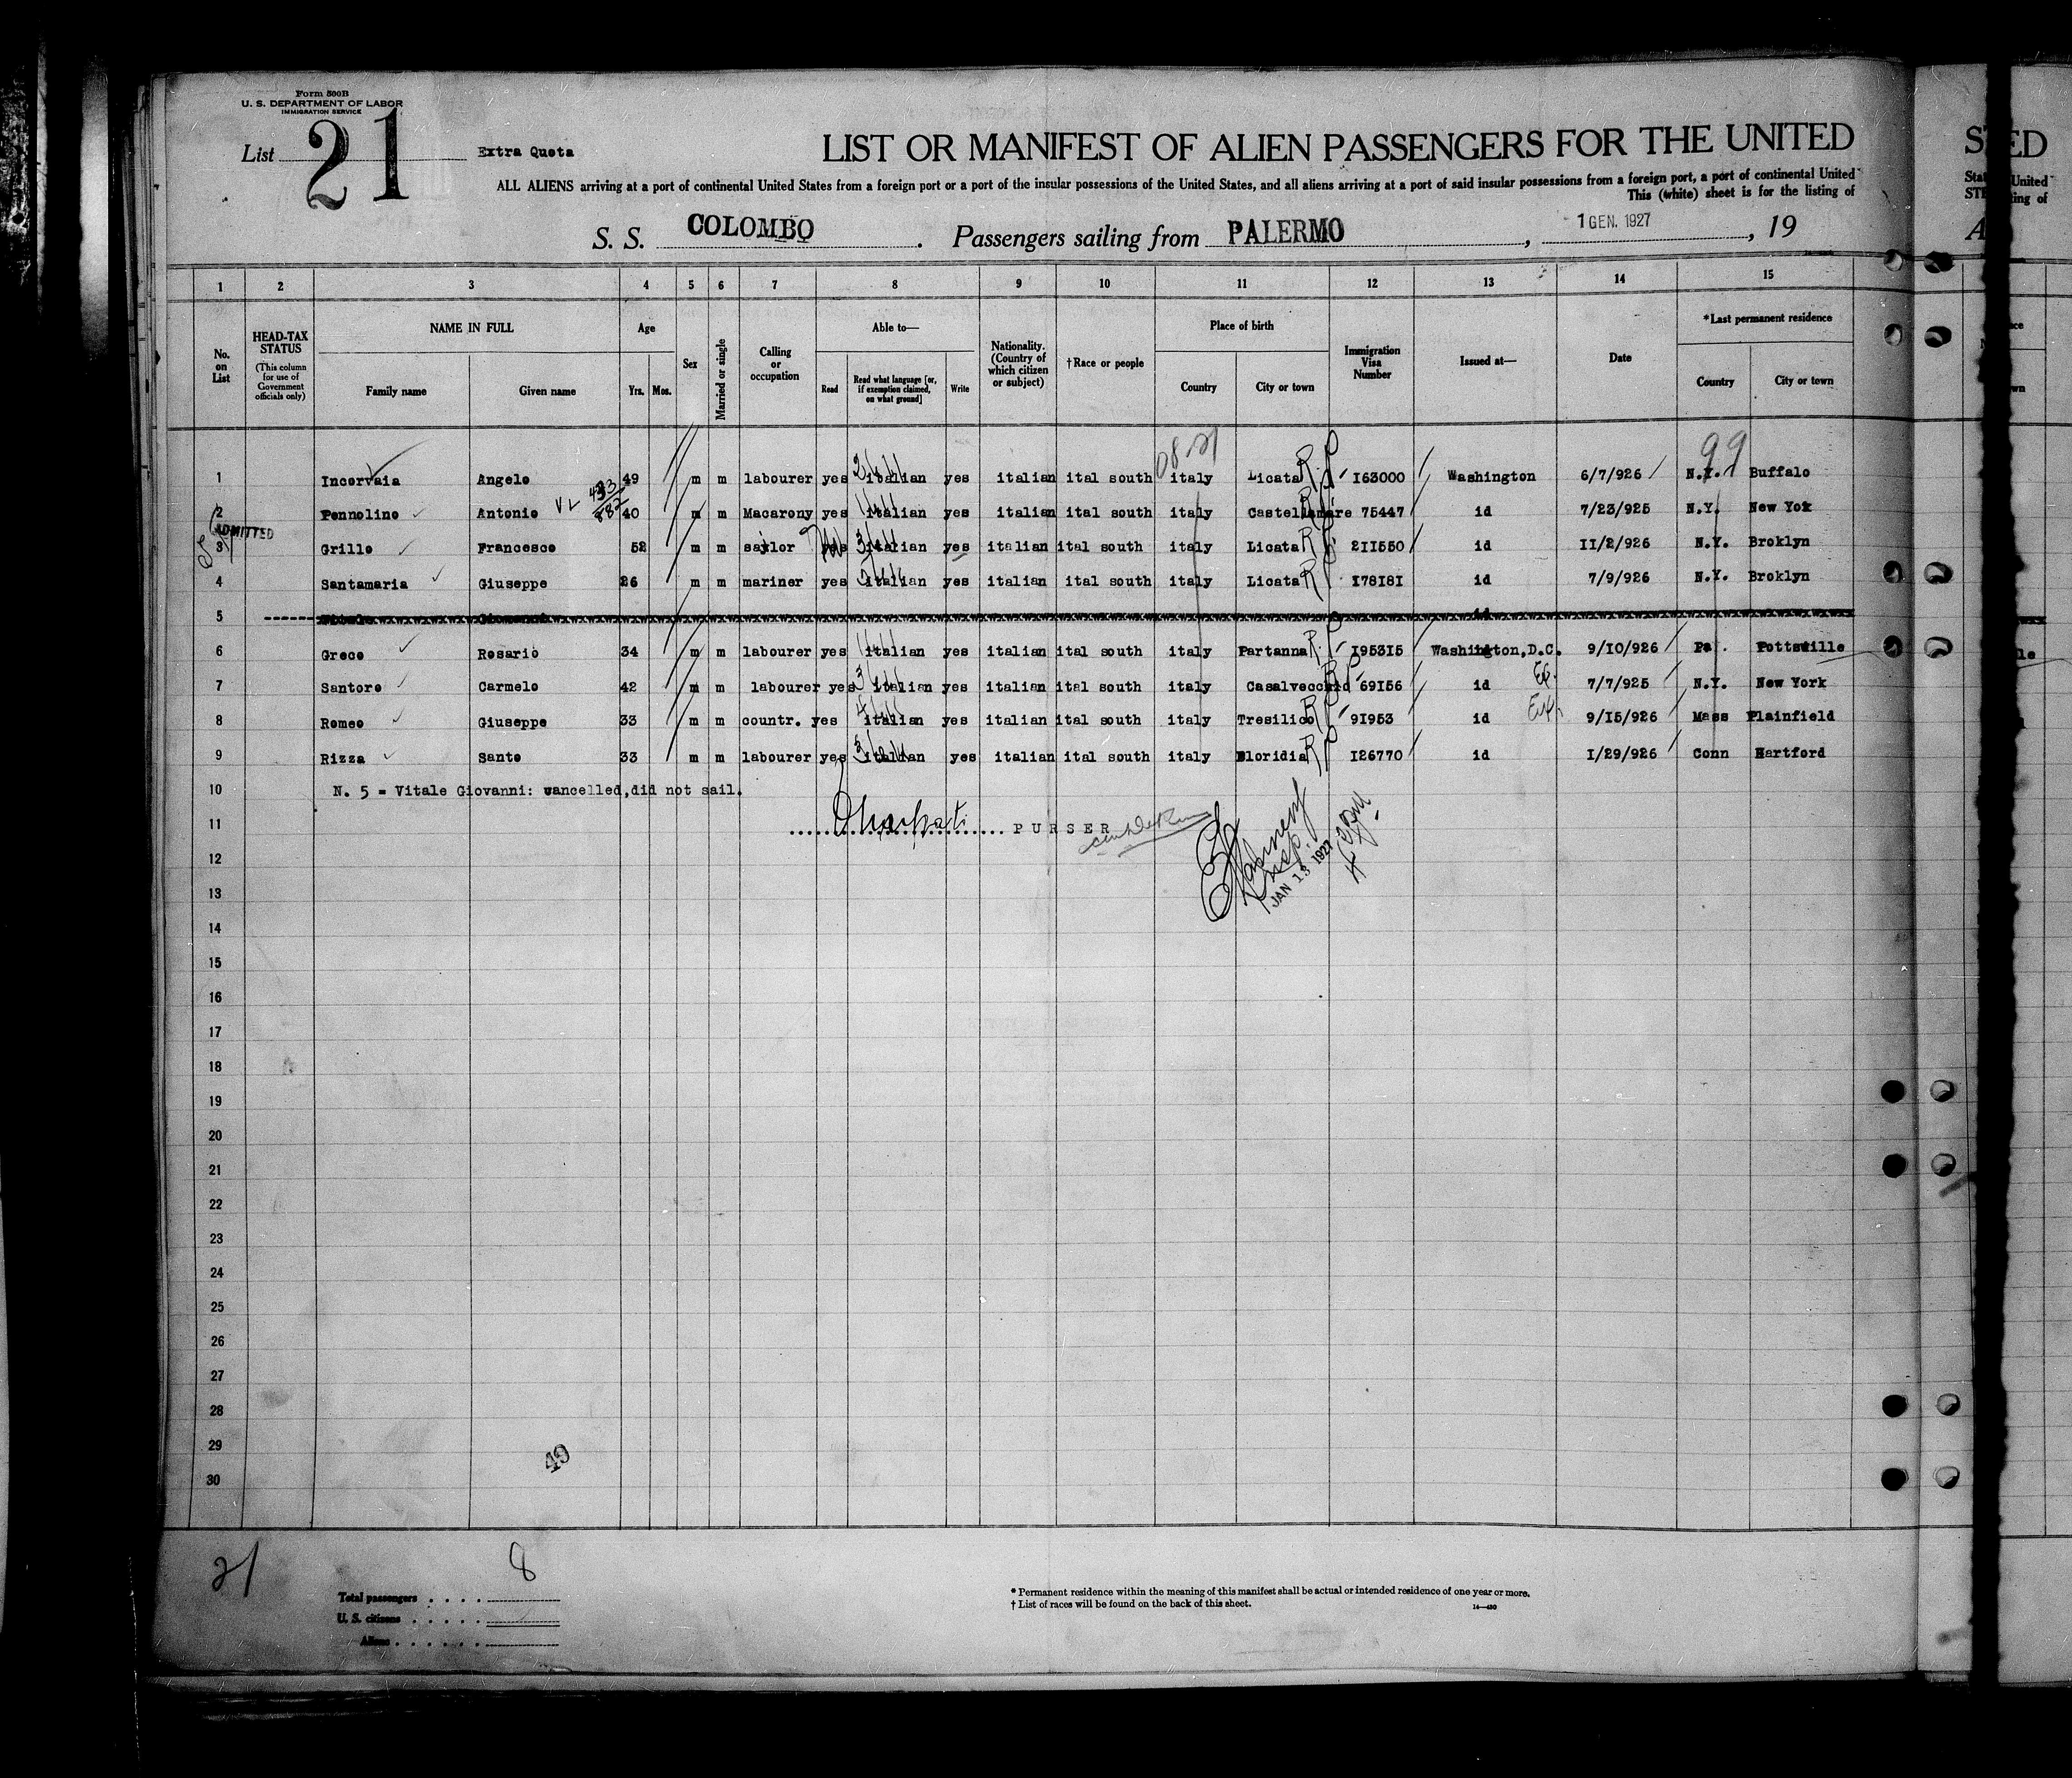 Form 500B
U. S. DEPARTMENT OF LABOR
IMMIGRATION SERVICE
List 21 Extra Quota
LIST OR MANIFEST OF ALIEN PASSENGERS FOR THE UNITED
ALL ALIENS arriving at a port of continental United States from a foreign port or a port of the insular possessions of the United States, and all aliens arriving at a port of said insular possessions from a foreign port, a port of continental United
This (white) sheet is for the listing of
S. S. COLOMBO. Passengers sailing from PALERMO, 1 GEN. 1927, 19
1 2 3 4 5 6 7 8 9 10 11 12 13 14 15
No. on List
HEAD-TAX STATUS
(This column for use of Government officials only)
NAME IN FULL
Family name Given name
Age
Yrs. Mos.
Sex
Married or single
Calling or occupation
Able to—
Read Read what language [or, if exemption claimed, on what ground] Write
Nationality. (Country of which citizen or subject)
†Race or people
Place of birth
Country City or town
Immigration Visa Number
Issued at—
Date
*Last permanent residence
Country City or town
08-21 99
1 Incorvaia Angelo 49 m m labourer yes italian yes italian ital south italy Licata 163000 Washington 6/7/926 N.Y. Buffalo
2 Pennolino Antonio 40 m m Macarony yes italian yes italian ital south italy Castellamare 75447 id 7/23/925 N.Y. New Yok
ADMITTED
3 Grillo Francesco 52 m m saylor yes italian yes italian ital south italy Licata 211550 id 11/2/926 N.Y. Broklyn
4 Santamaria Giuseppe 26 m m mariner yes italian yes italian ital south italy Licata 178181 id 7/9/926 N.Y. Broklyn
5
6 Greco Rosario 34 m m labourer yes italian yes italian ital south italy Partanna 195315 Washington,D.C. 9/10/926 Pa. Pottsville
7 Santoro Carmelo 42 m m labourer yes italian yes italian ital south italy Casalvecchio 69156 id 7/7/925 N.Y. New York
8 Romeo Giuseppe 33 m m countr. yes italian yes italian ital south italy Tresilico 91953 id 9/15/926 Mass Plainfield
9 Rizza Santo 33 m m labourer yes italian yes italian ital south italy Floridia 126770 id 1/29/926 Conn Hartford
10 N. 5 = Vitale Giovanni: cancelled,did not sail.
11 PURSER
12
JAN 13 1927
13
14
15
16
17
18
19
20
21
22
23
24
25
26
27
28
29
49
30
21
8
Total passengers
U. S. citizens
Aliens
* Permanent residence within the meaning of this manifest shall be actual or intended residence of one year or more.
† List of races will be found on the back of this sheet.
14—430